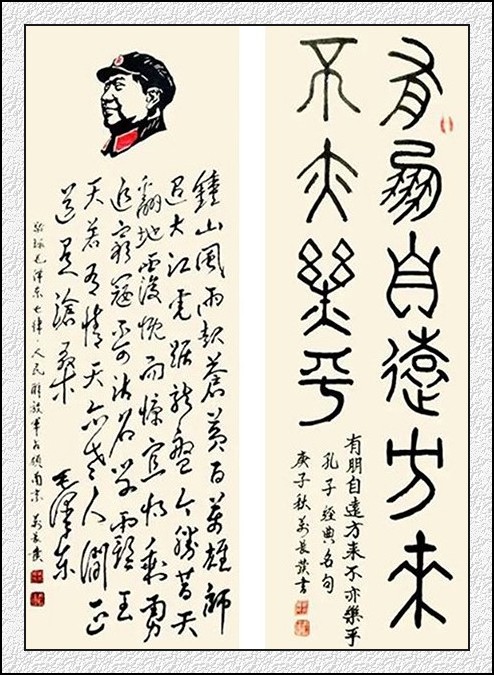 有朋自遠方來
不亦樂乎
有朋自遠方来不亦樂乎
孔子經典名句
庚子秋 長發書
鐘山風雨起蒼黃百万雄師
過大江虎踞龍盤今勝昔天
翻地覆慨而慷宜將剩勇
追窮寇不可沽名學霸王
天若有情天亦老人間正
道是滄桑 毛澤東
毛澤東七律·人民解放軍占領南京 長發